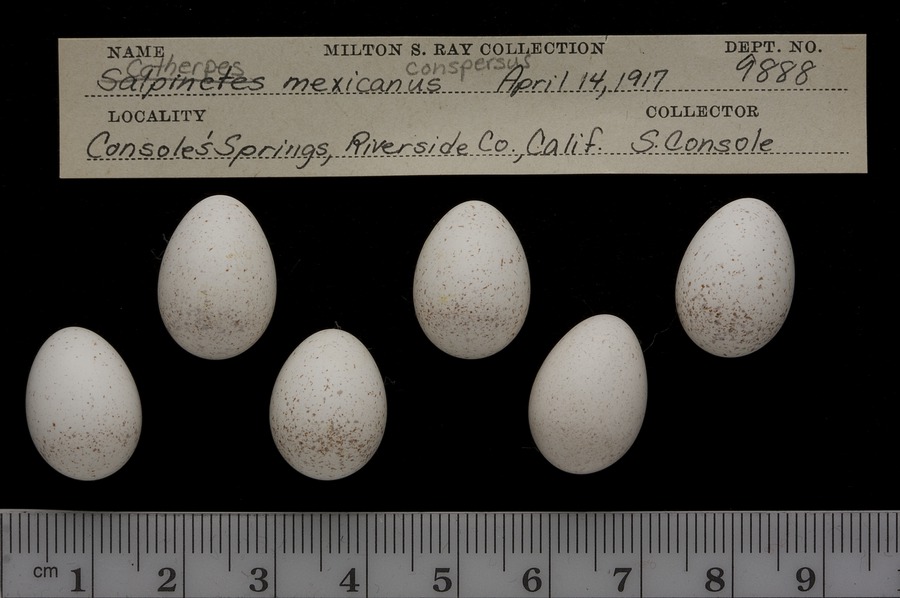 NAME MILTON S. RAY COLLECTION DEPT. NO.
Catherpes conspersus
Salpinctes mexicanus April 14, 1917 9888
LOCALITY COLLECTOR
Console's Springs, Riverside Co., Calif. S. Console
cm 1 2 3 4 5 6 7 8 9